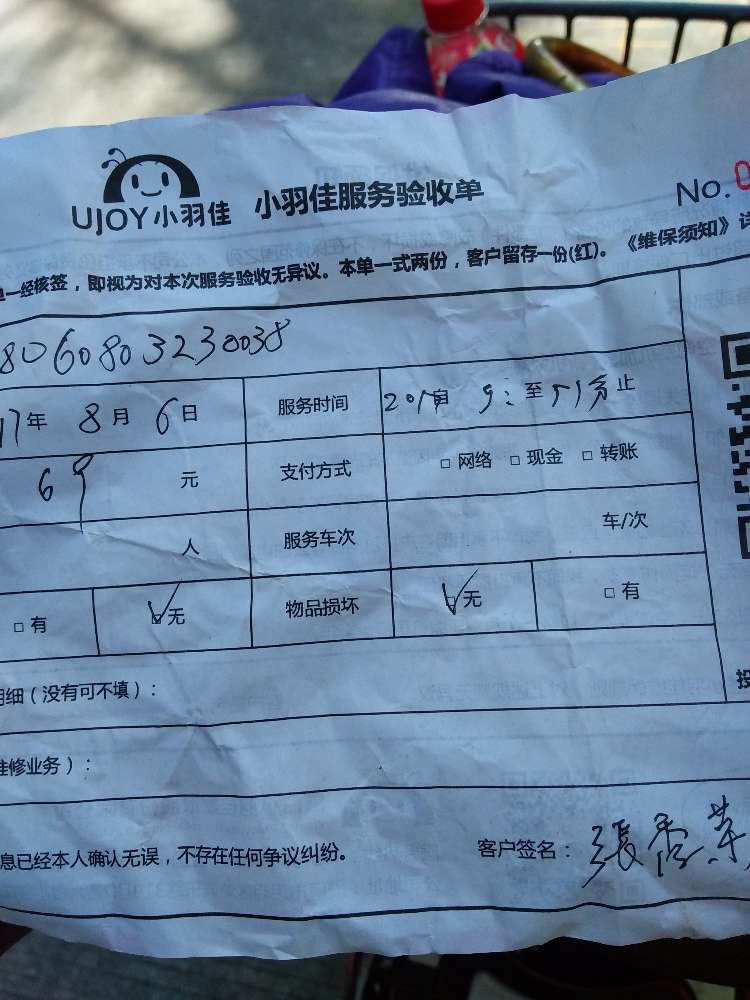 UJOY小羽佳 小羽佳服务验收单 No.0
一经核签，即视为对本次服务验收无异议。本单一式两份，客户留存一份(红)。《维保须知》详
8060803230038
17年 8月 6日 服务时间 自 9: 至 分止
69 元 支付方式 □ 网络 □ 现金 □ 转账
人 服务车次 车/次
□ 有 ☑无 物品损坏 ☑无 □ 有
明细（没有可不填）：
投
维修业务）：
息已经本人确认无误，不存在任何争议纠纷。 客户签名：張香